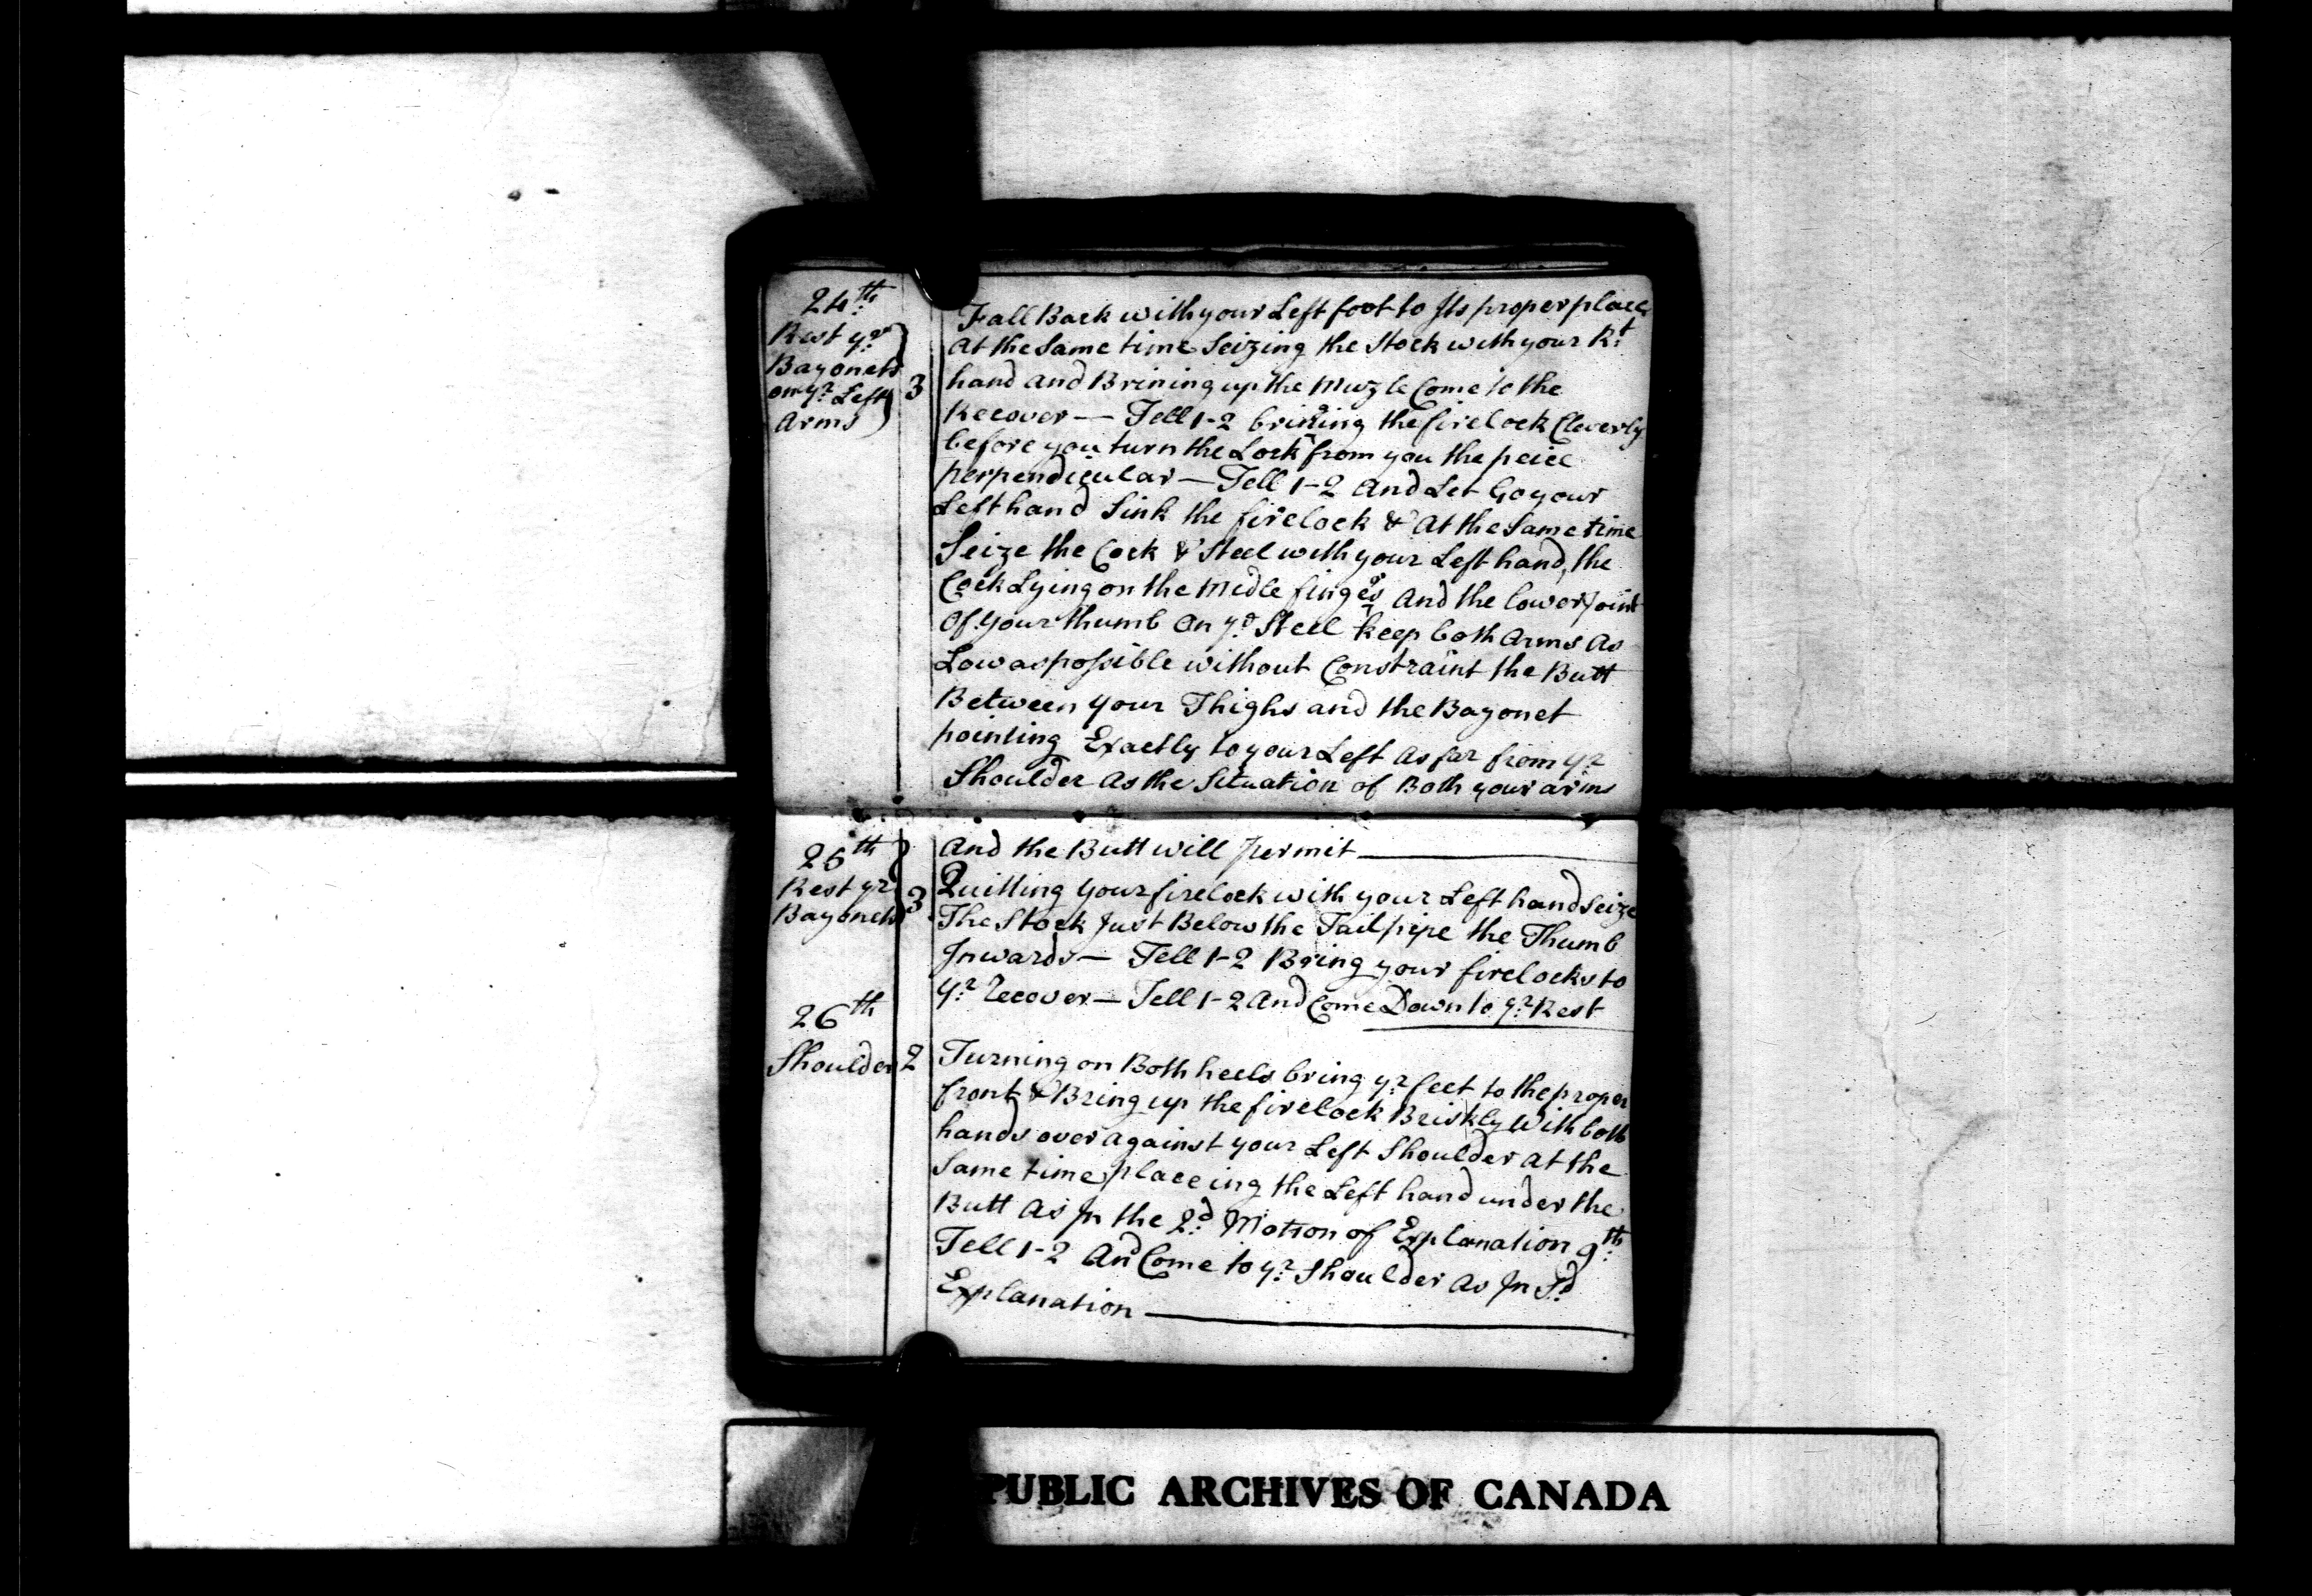 24th
Rest yr
Bayonets
on yr Left
Arms
3
Fall Back with your Left foot to Its proper place
At the Same time Seizing the Stock with your Rt
hand and Brining up the Muzle Come to the
Recover — Tell 1-2 brining the firelock Cleverly
before you turn the Lock from you the peice
perpendicular — Tell 1-2 And Let Go your
Left hand Sink the firelock & At the Same time
Seize the Cock & Steel with your Left hand, the
Cock Lying on the Midle finger And the lower Joint
Of your thumb On ye Steel keep both Arms As
Low as possible without Constraint the Butt
Between your Thighs and the Bayonet
pointing Exactly to your Left As far from yr
Shoulder As the Situation of Both your arms
And the Butt will permit
25th
Rest yr
Bayonets
3
Quitting your firelock with your Left hand Seize
The Stock Just Below the Tail pipe the Thumb
Inwards — Tell 1-2 Bring your firelocks to
yr recover — Tell 1-2 And Come Down to yr Rest
26th
Shoulder
2
Turning on Both heels bring yr feet to the proper
front & Bring up the firelock Briskly With both
hands over against your Left Shoulder At the
Same time placeing the Left hand under the
Butt As In the 2d Motion of Explanation 9th
Tell 1-2 And Come to yr Shoulder As In Sd
Explanation
PUBLIC ARCHIVES OF CANADA